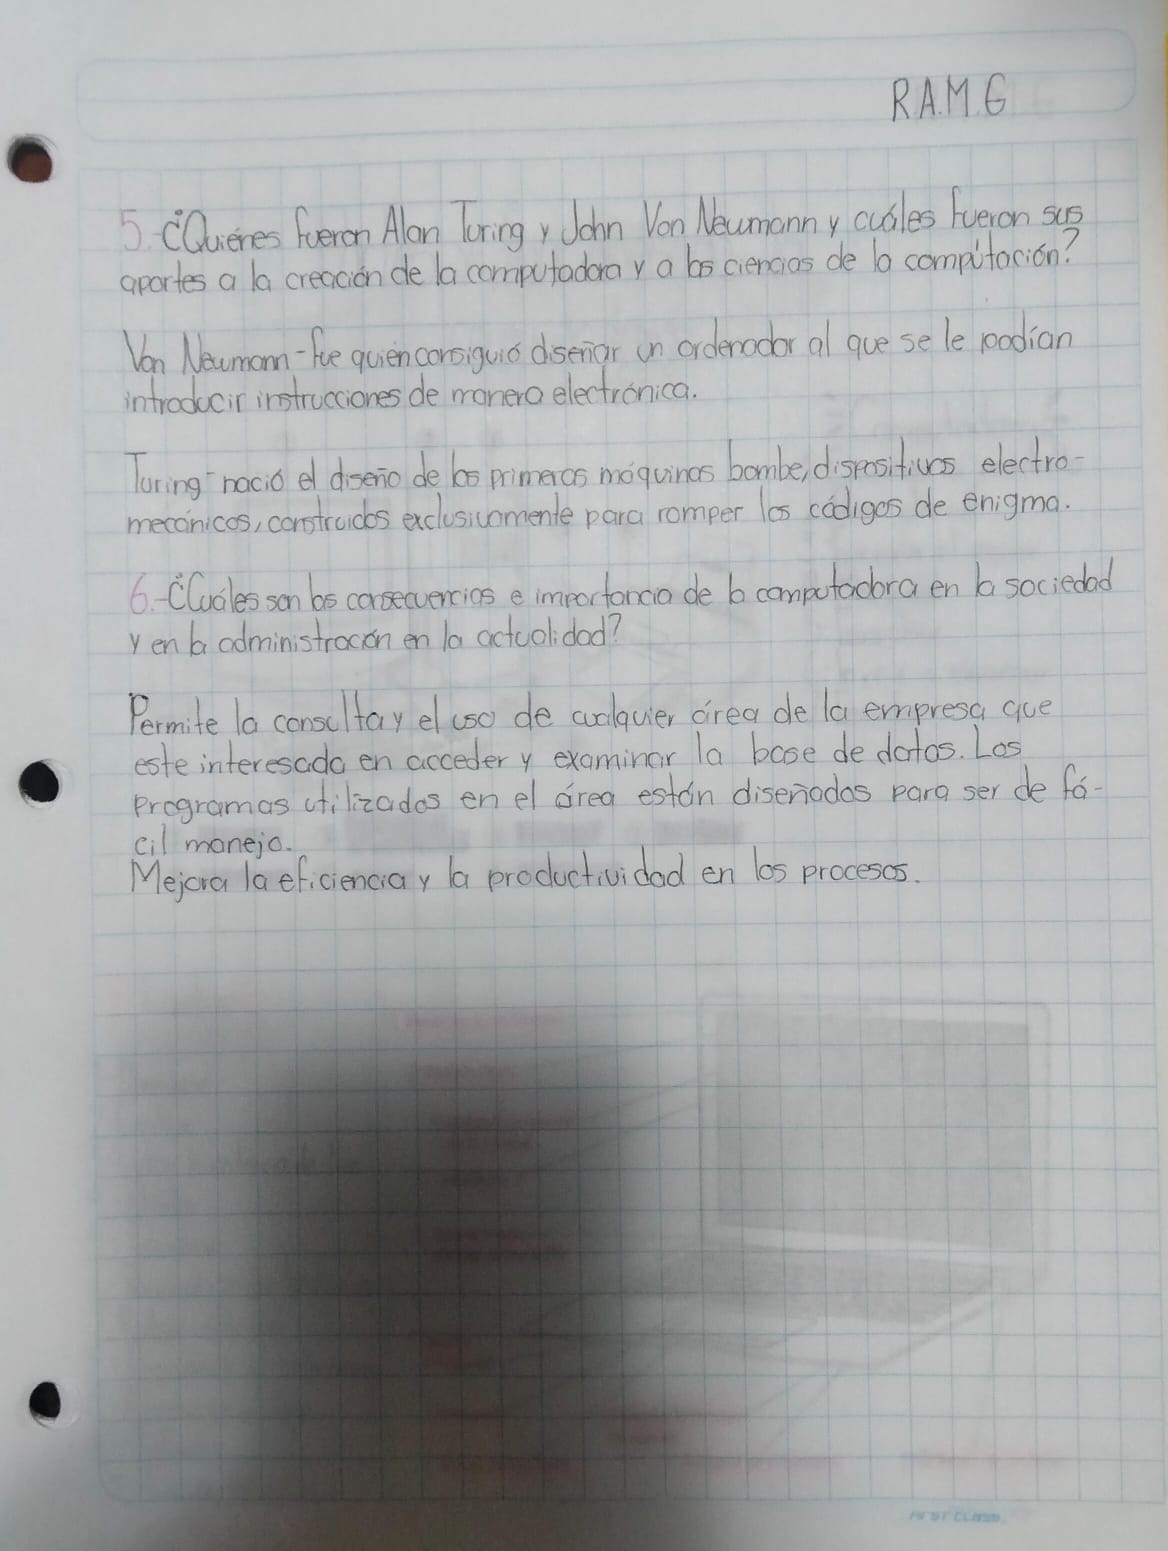 R.A.M.G
5. ¿Quiénes fueron Alan Turing y John Von Neumann y cuáles fueron sus
aportes a la creación de la computadora y a las ciencias de la computación?
Von Neumann - fue quien consiguió diseñar un ordenador al que se le podían
introducir instrucciones de manera electrónica.
Turing - nació el diseño de las primeras máquinas bombe, dispositivos electro-
mecánicos, construidos exclusivamente para romper los códigos de enigma.
6.- ¿Cuáles son las consecuencias e importancia de la computadora en la sociedad
y en la administración en la actualidad?
Permite la consulta y el uso de cualquier área de la empresa que
este interesada en acceder y examinar la base de datos. Los
programas utilizados en el área están diseñados para ser de fá-
cil manejo.
Mejora la eficiencia y la productividad en los procesos.
FIRST CLASS